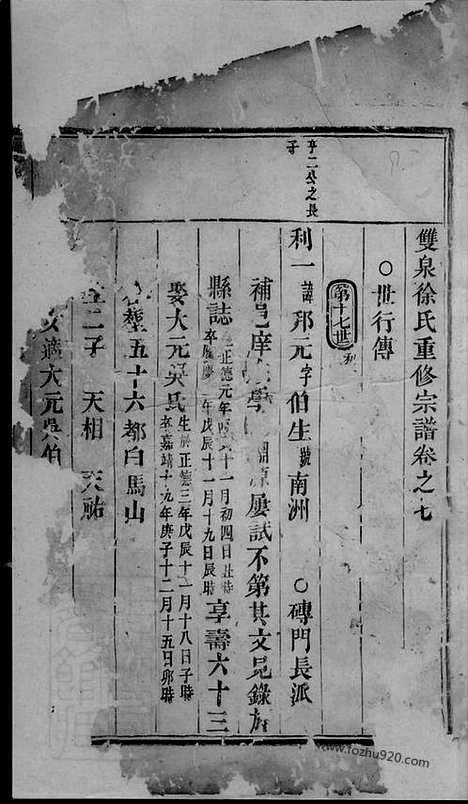 雙泉徐氏重修宗譜卷之七
○世行傳
第十七世 利
亨二公之長子
利一 諱邦元字伯生號南洲 ○磚門長派
補邑庠 學 淵源屢試不第其文見錄於
縣誌 正德元年 十一月初四日丑時 卒隆慶 年戊辰十一月十九日辰時 享壽六十三
娶大元吳氏 生於正德三年戊辰十一月十八日子時 卒嘉靖十九年庚子十二月十五日卯時
塟五十六都白馬山
二子 天相 天祐
女適大元吳伯
www.fozhu920.com